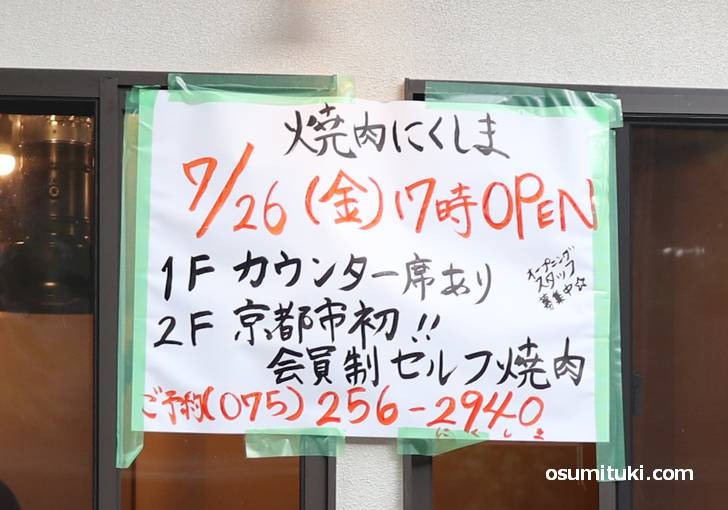 焼肉にくしま
7/26(金)17時OPEN
1F カウンター席あり
オープニング
スタッフ
募集中☆
2F 京都市初!!
会員制セルフ焼肉
ご予約(075)256-2940
にくしま
osumituki.com